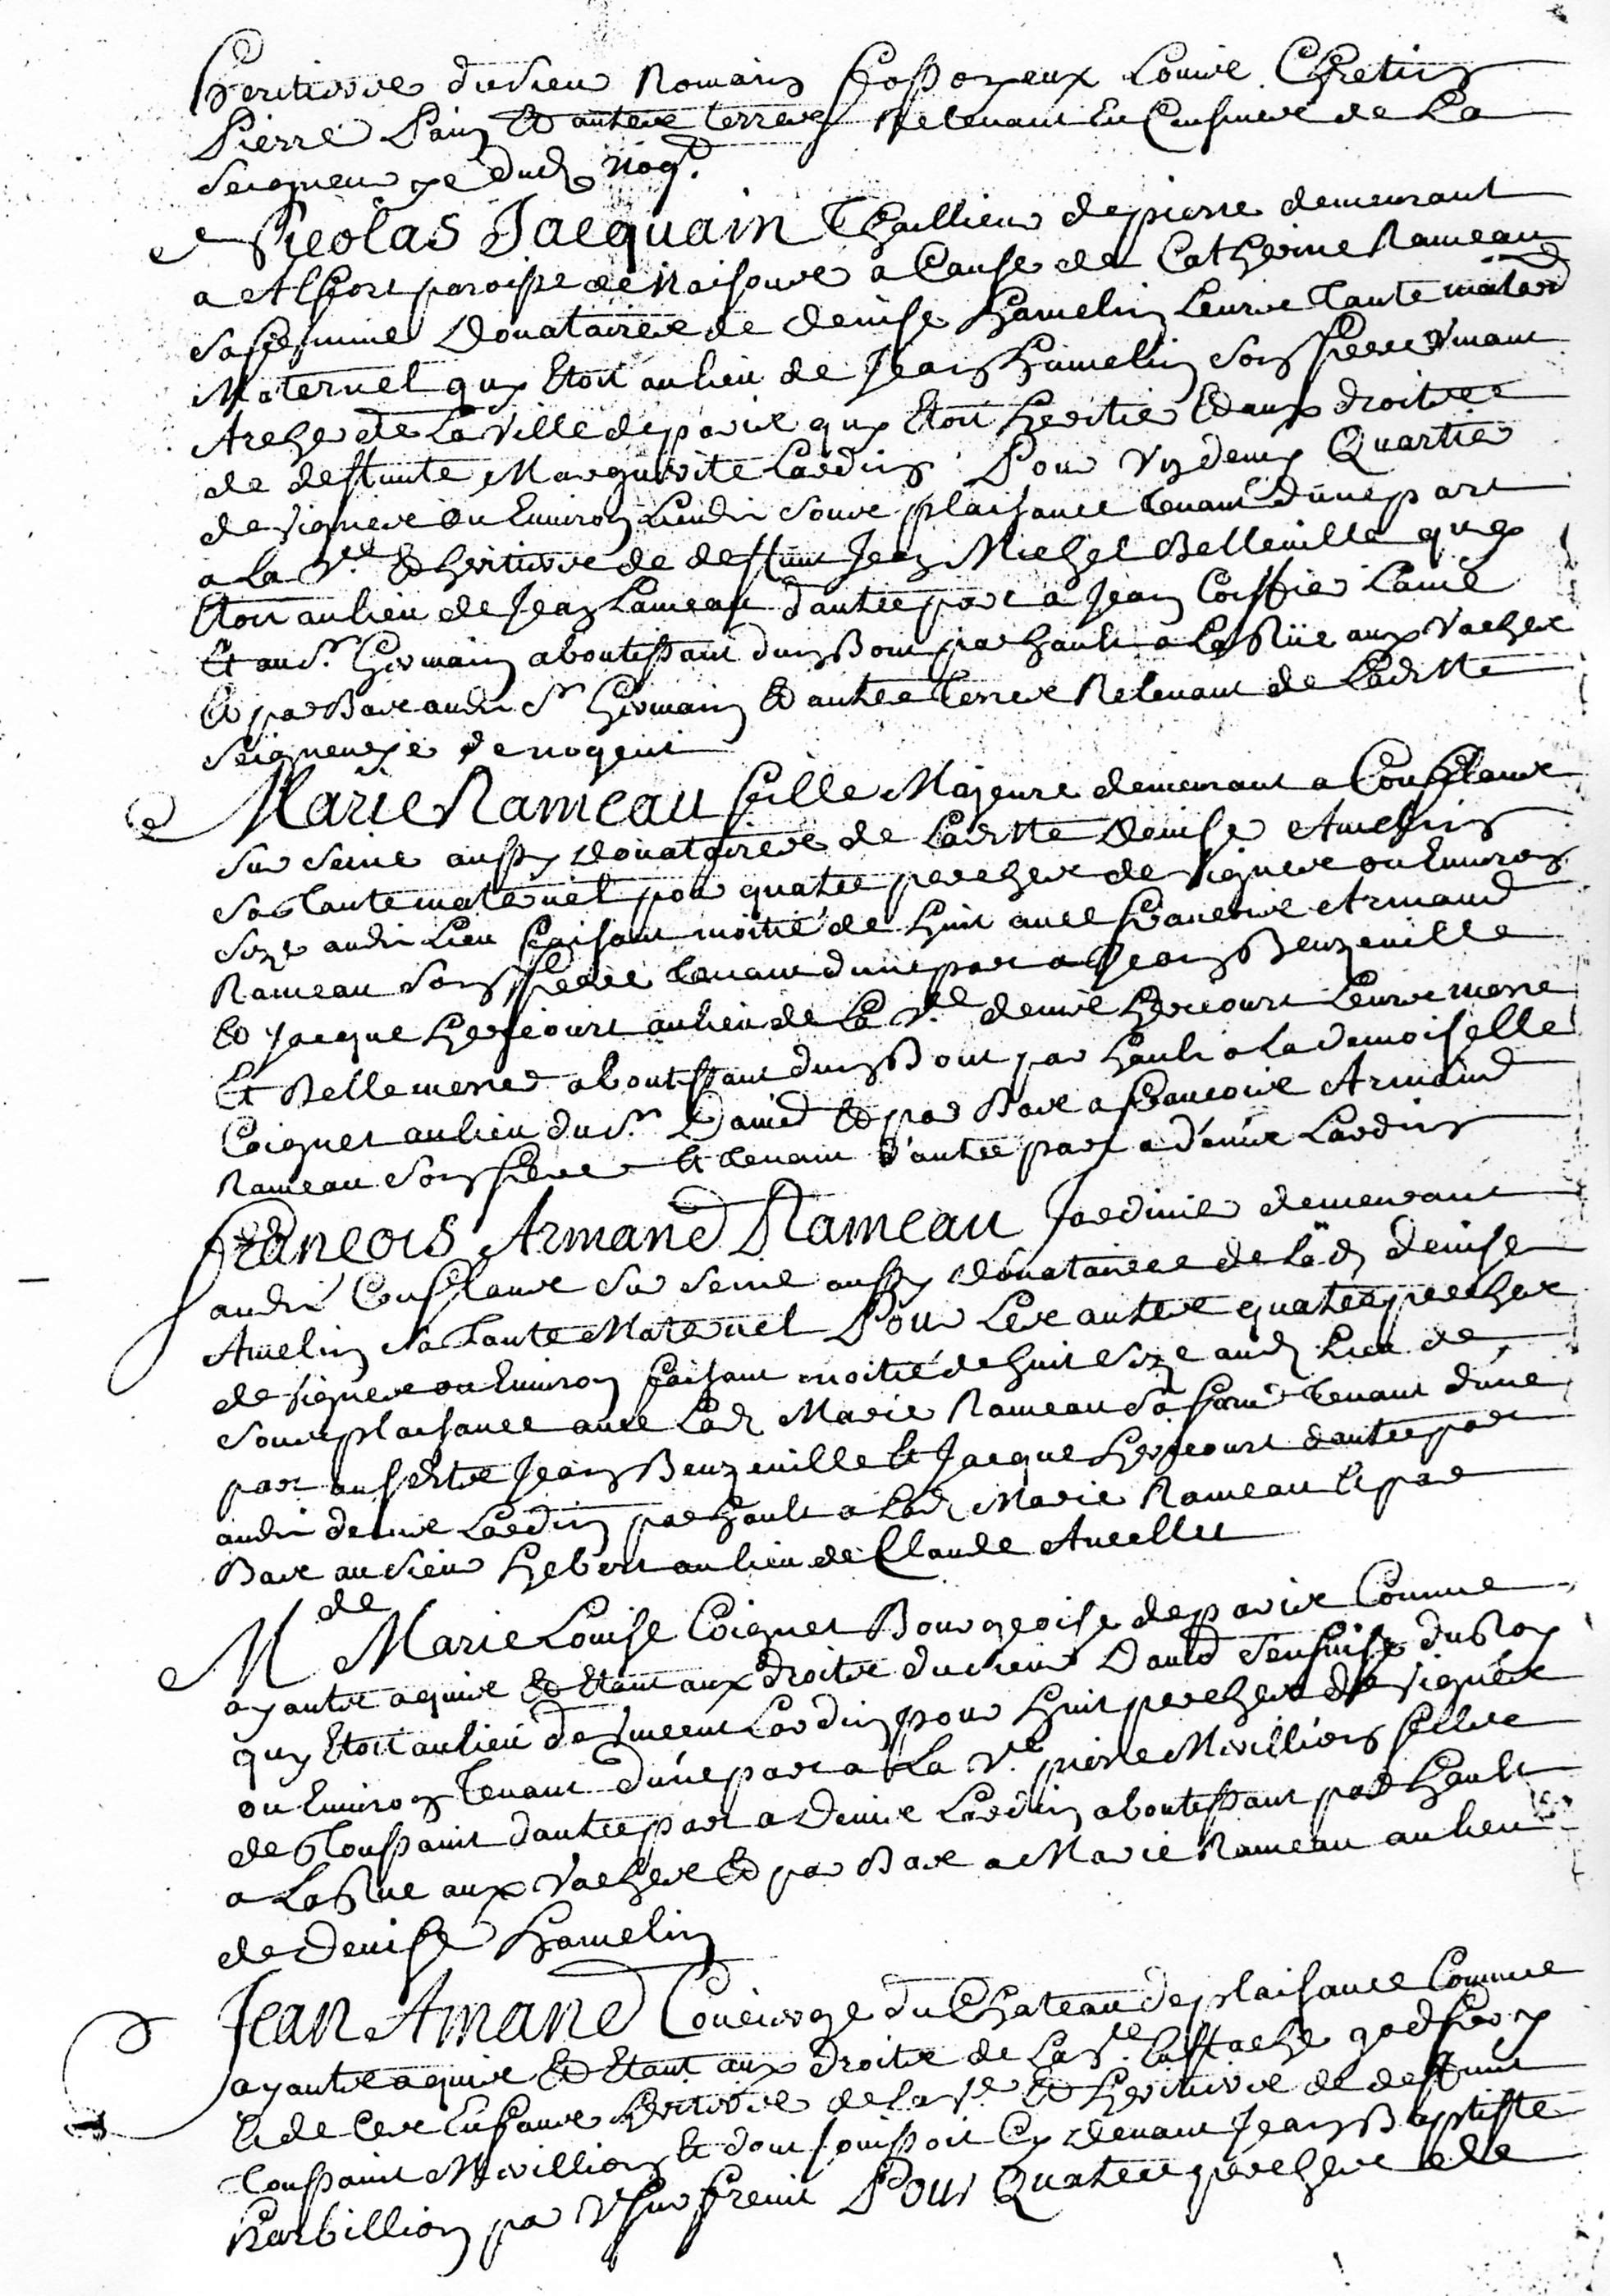 heritiers du sieur Romain fossoyeux Louis Chretien
Pierre Pain Et autres terres Relevant En Censive de La
Seigneurye dud Nog.t
Nicolas Jacquain Thaillieur de pierre demeurant
a Alfort paroisse de Maisons a Cause de Catherine Rameau
sa femme Donataires de Denise hamelin Leurs Tante
Maternel quy Etoit au lieu de Jean hamelin son frere vivant
Archer de La Ville de paris quy Etoit heritier Et aux droits
de deffunte Marguerite Lardin Pour Un demy Quartier
de vignes ou Environ Lieudit sous plaisance tenant d'une part
a La V.e Et heritiers de deffunt Jean Michel Belleville quy
Etoit au lieu de Jean Lameau d'autre part a Jean Coiffier Lainé
Et au S.r Germain aboutissant d'un Bout par hault a La Rüe aux Vaches
Et par Bas audit S.r Germain Et autres Terres Relevant de Laditte
Seigneurye de nogent
Marie Rameau fille Majeure demeurant a Conflans
sur seine aussy Donataires de Laditte Denise Amelin
sa Tante maternel pour quatre perches de vignes ou Environ
size audit Lieu faisant moitié de huit avec francois Armand
Rameau son frere tenant d'une part a Jean Beuzeville
Et Jacque hericourt au lieu de La V.e denis hericourt Leurs mere
Et Belle mere aboutissant d'un Bout par hault a La demoiselle
Coignet au lieu du S.r David Et par Bas a francois Armand
Rameau son frere Et tenant d'autre part a denis Lardin
francois Armand Rameau Jardinier demeurant
audit Conflans sur seine aussy donataires de Lad denise
Amelin sa Tante Maternel Pour Les autres quatre perches
de vignes ou Environ faisant moitié de huit size aud Lieu de
sous plaisance avec Lad Marie Rameau sa sœur Tenant d'une
part ausdits Jean Beuzeville Et Jacque hericourt d'autre part
audit denis Lardin par hault a Lad Marie Rameau Et par
Bas au sieur hebert au lieu de Claude Ancellet
M de Marie Louise Coignet Bourgeoise de paris Comme
ayante aquis Et Etant aux droits du sieur David Suisse du Roy
quy Etoit au lieu de Vincent Lardin pour huit perches de vignes
ou Environ Tenant d'une part a La V.e pierre Mivillion fille
de Toussaint d'autre part a Denis Lardin aboutissant par hault
a La Rue aux Vaches Et par Bas a Marie Rameau au lieu
de Denise hamelin
Jean Amand Concierge du Chateau de plaisance Comme
ayante aquis Et Etant aux droits de La V.e Eustache godefroy
Et de Ces Enfans heritiers de La V.e Et heritiers de deffunt
Toussaint Mivillion Et dont jouissoit Cy devant Jean Baptiste
Barbillion par Usufruit Pour Quatre perches de